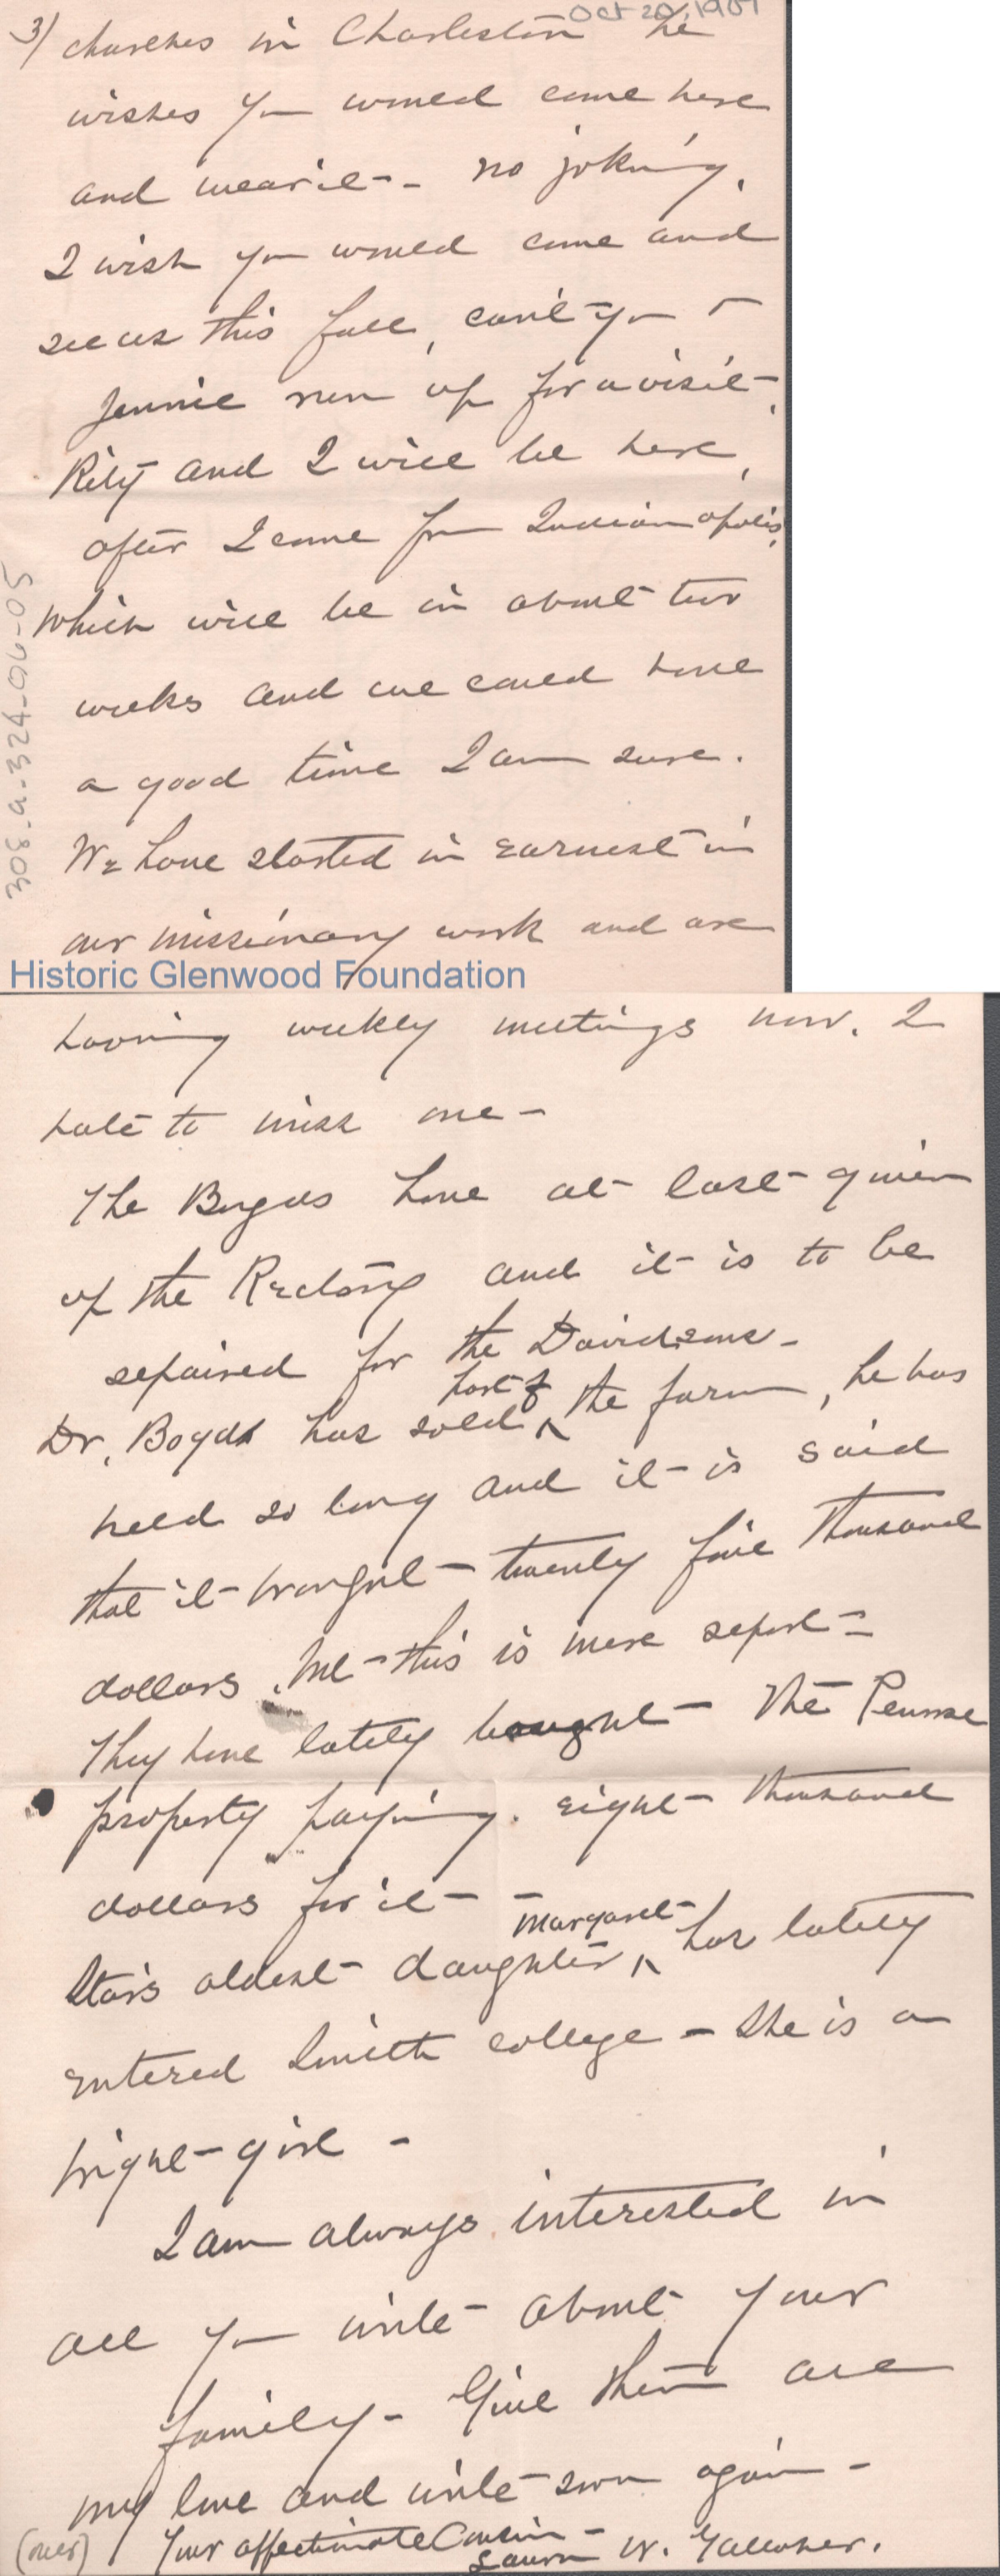 Oct 20, 1901
3) churches in Charleston he
wishes you would come here
and wear it - no joking.
I wish you would come and
see us this fall, can't you &
Jennie run up for a visit.
Rity and I will be here,
after I come from Indianapolis,
which will be in about two
weeks and we could have
a good time I am sure.
We have started in earnest in
our missionary work and are
308.a.324-06-05
Historic Glenwood Foundation
having weekly meetings now. I
hate to miss one -
The Boyds have at last given
up the Rectory and it is to be
repaired for the Davidsons -
Dr. Boyd has sold part of the farm, he has
held so long and it is said
that it brought twenty five thousand
dollars, but this is mere report -
They have lately bought the
property paying eight thousand
dollars for it -
oldest daughter Margaret has lately
entered Smith college - She is a
bright girl -
I am always interested in
all you write about your
family - Give them all
my love and write soon again -
(over) Your affectionate Cousin -
Laura W. Gallaher.